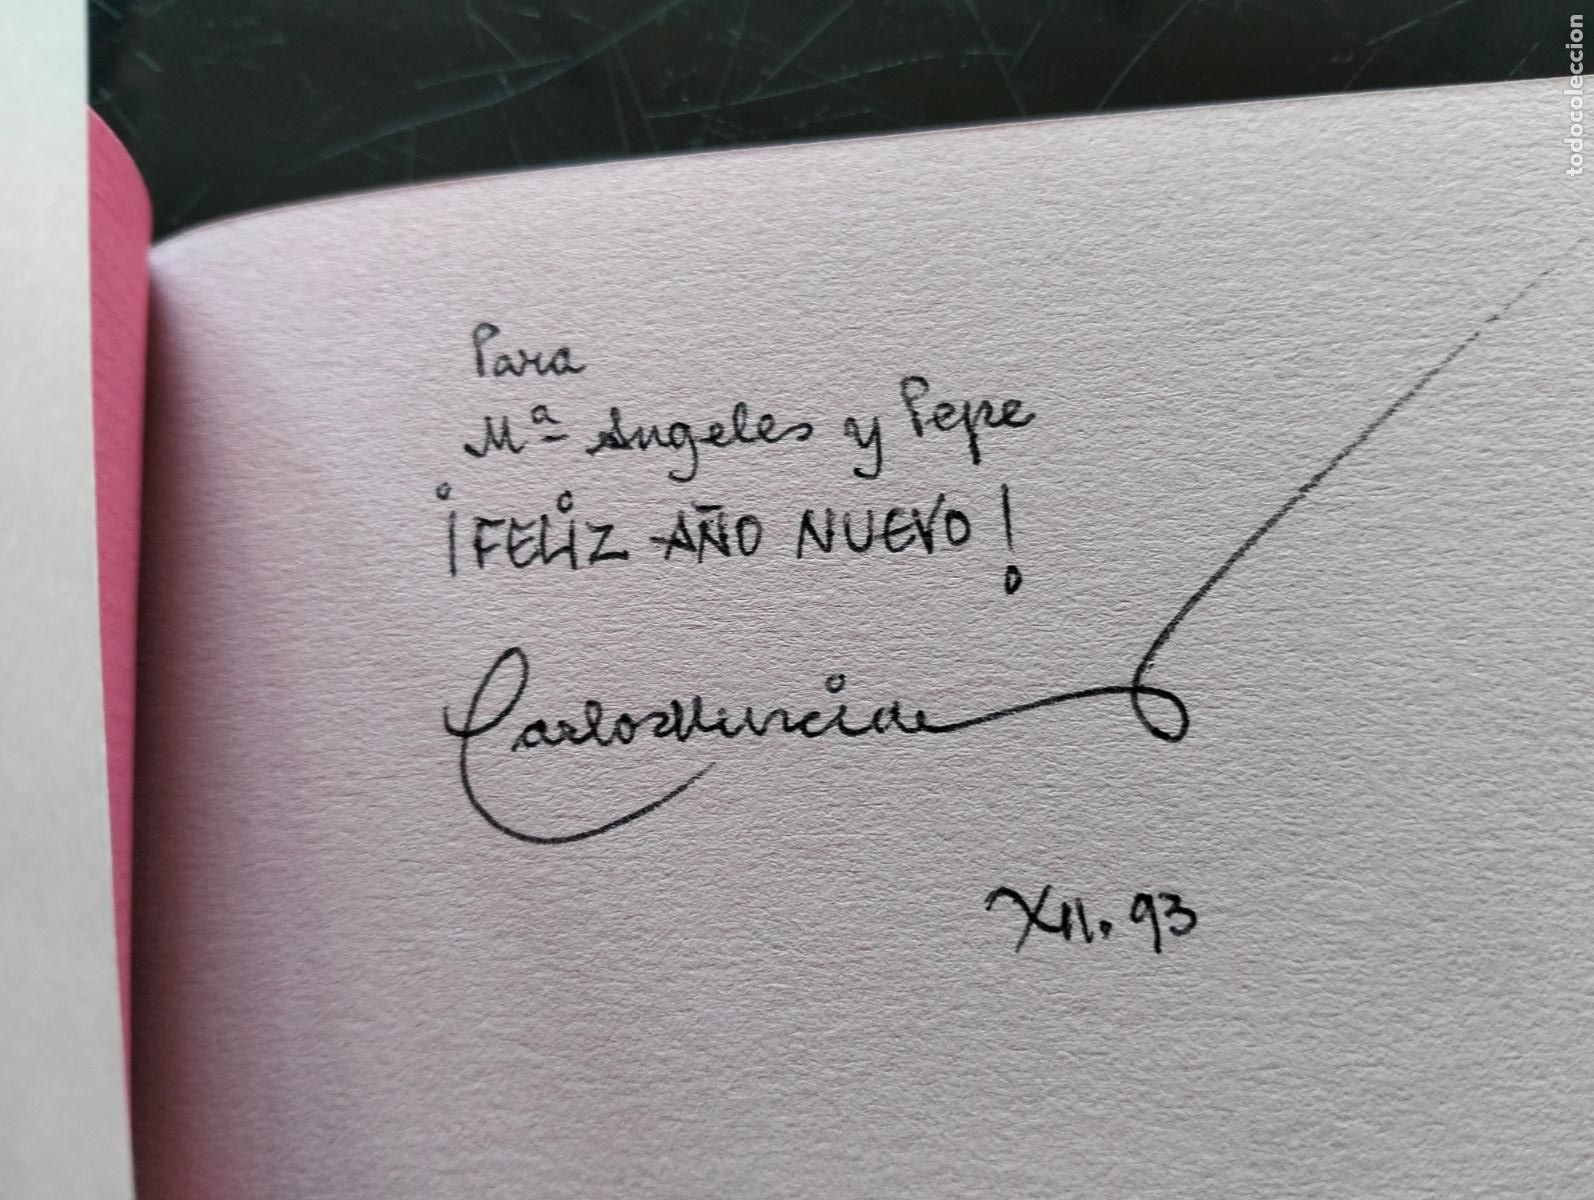 Para
Mª Angeles y Pepe
¡FELiZ AÑO NUEVO!
Carlos Murciano
XII. 93
todocoleccion